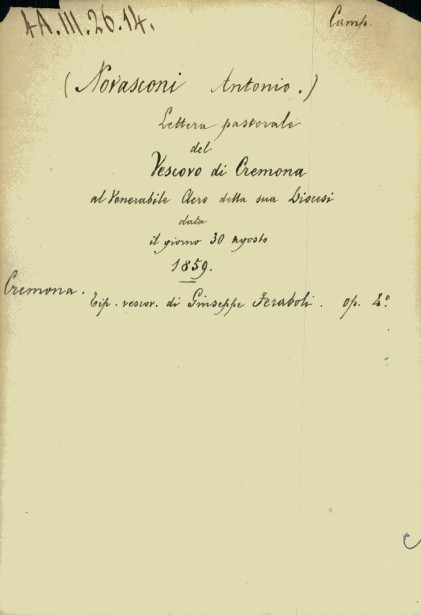 4A.III.26.14.
Camp.
(Novasconi Antonio.)
Lettera pastorale
del
Vescovo di Cremona
al Venerabile Clero della sua Diocesi
data
il giorno 30 agosto
1859.
Cremona.
Tip. vescov. di Giuseppe Feraboli. op. 4°